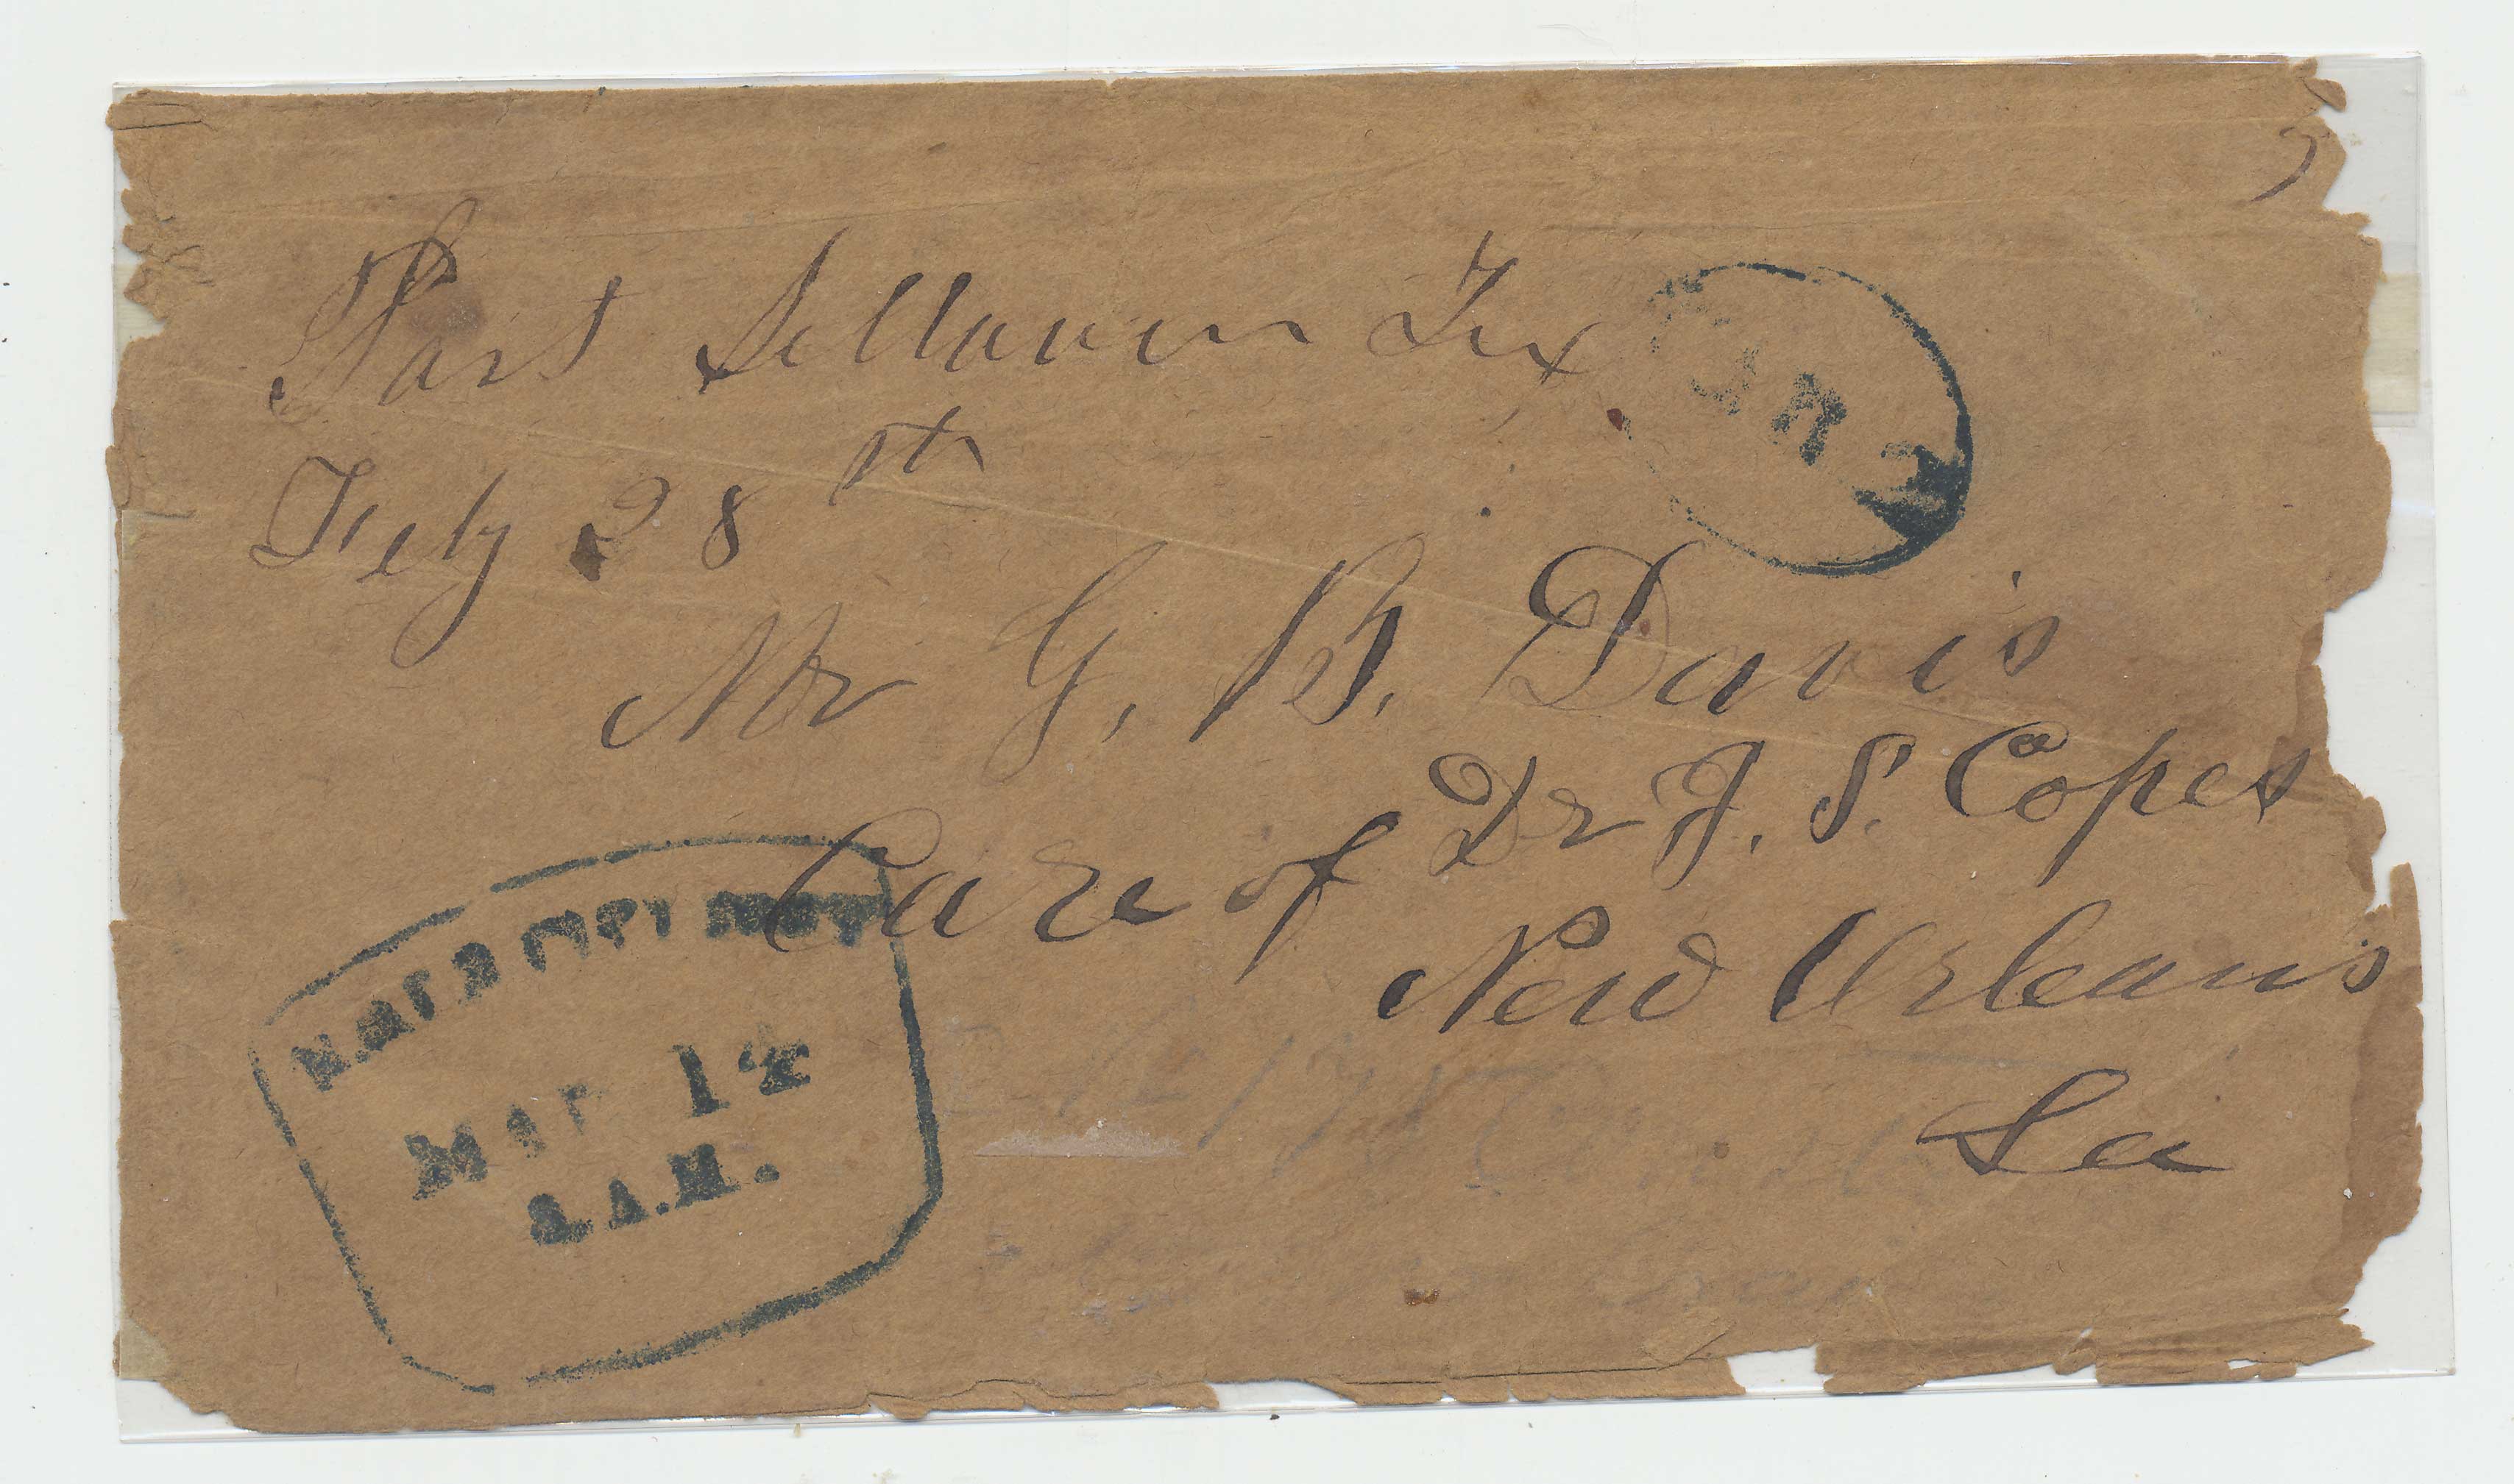 Port Sullavan Tex
Feby 28th
Mr G. B. Davis
Care of Dr J. S. Copes
New Orleans
La
MAR 14
A.M.